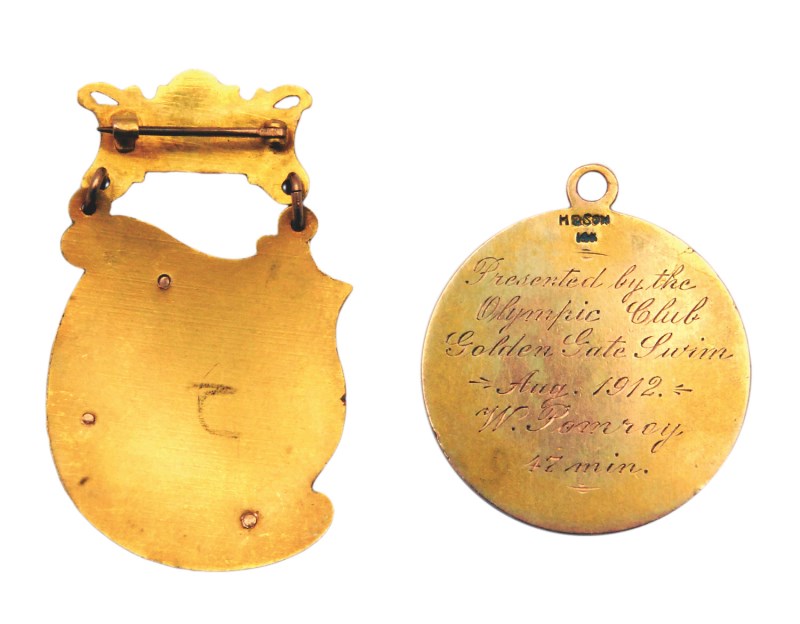 Presented by the
Olympic Club
Golden Gate Swim
Aug. 1912.
W. Pomroy
47 min.